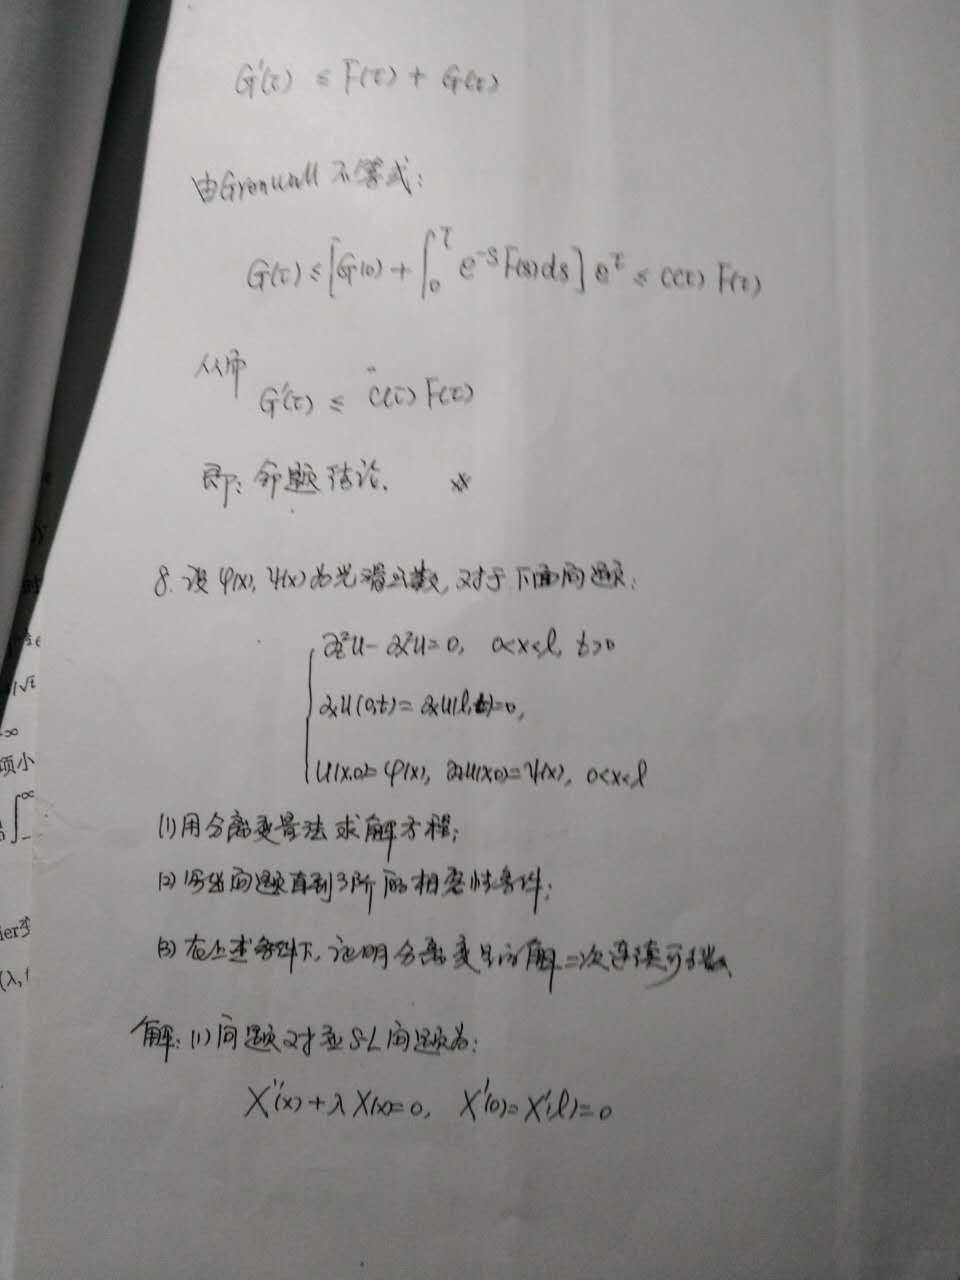 G'(τ) ≤ F(τ) + G(τ)
由Gronwall 不等式:
G(τ) ≤ [G(0) + ∫₀^τ e^{-s} F(s) ds] e^τ ≤ C(τ) F(τ)
从而
G'(τ) ≤ C(τ) F(τ)
即: 命题结论.
8. 设 φ(x), ψ(x) 为光滑函数, 对于下面问题:
∂t²u - ∂x²u = 0, 0<x<l, t>0
∂xu(0,t) = ∂xu(l,t) = 0,
u(x,0) = φ(x), ∂tu(x,0) = ψ(x), 0<x<l
(1) 用分离变量法求解方程;
(2) 写出问题直到3阶的相容性条件;
(3) 在上述条件下, 证明分离变量的解二次连续可微
解: (1) 问题对应S-L问题为:
X''(x) + λX(x) = 0, X'(0) = X'(l) = 0
项小
ier变
(λ,t